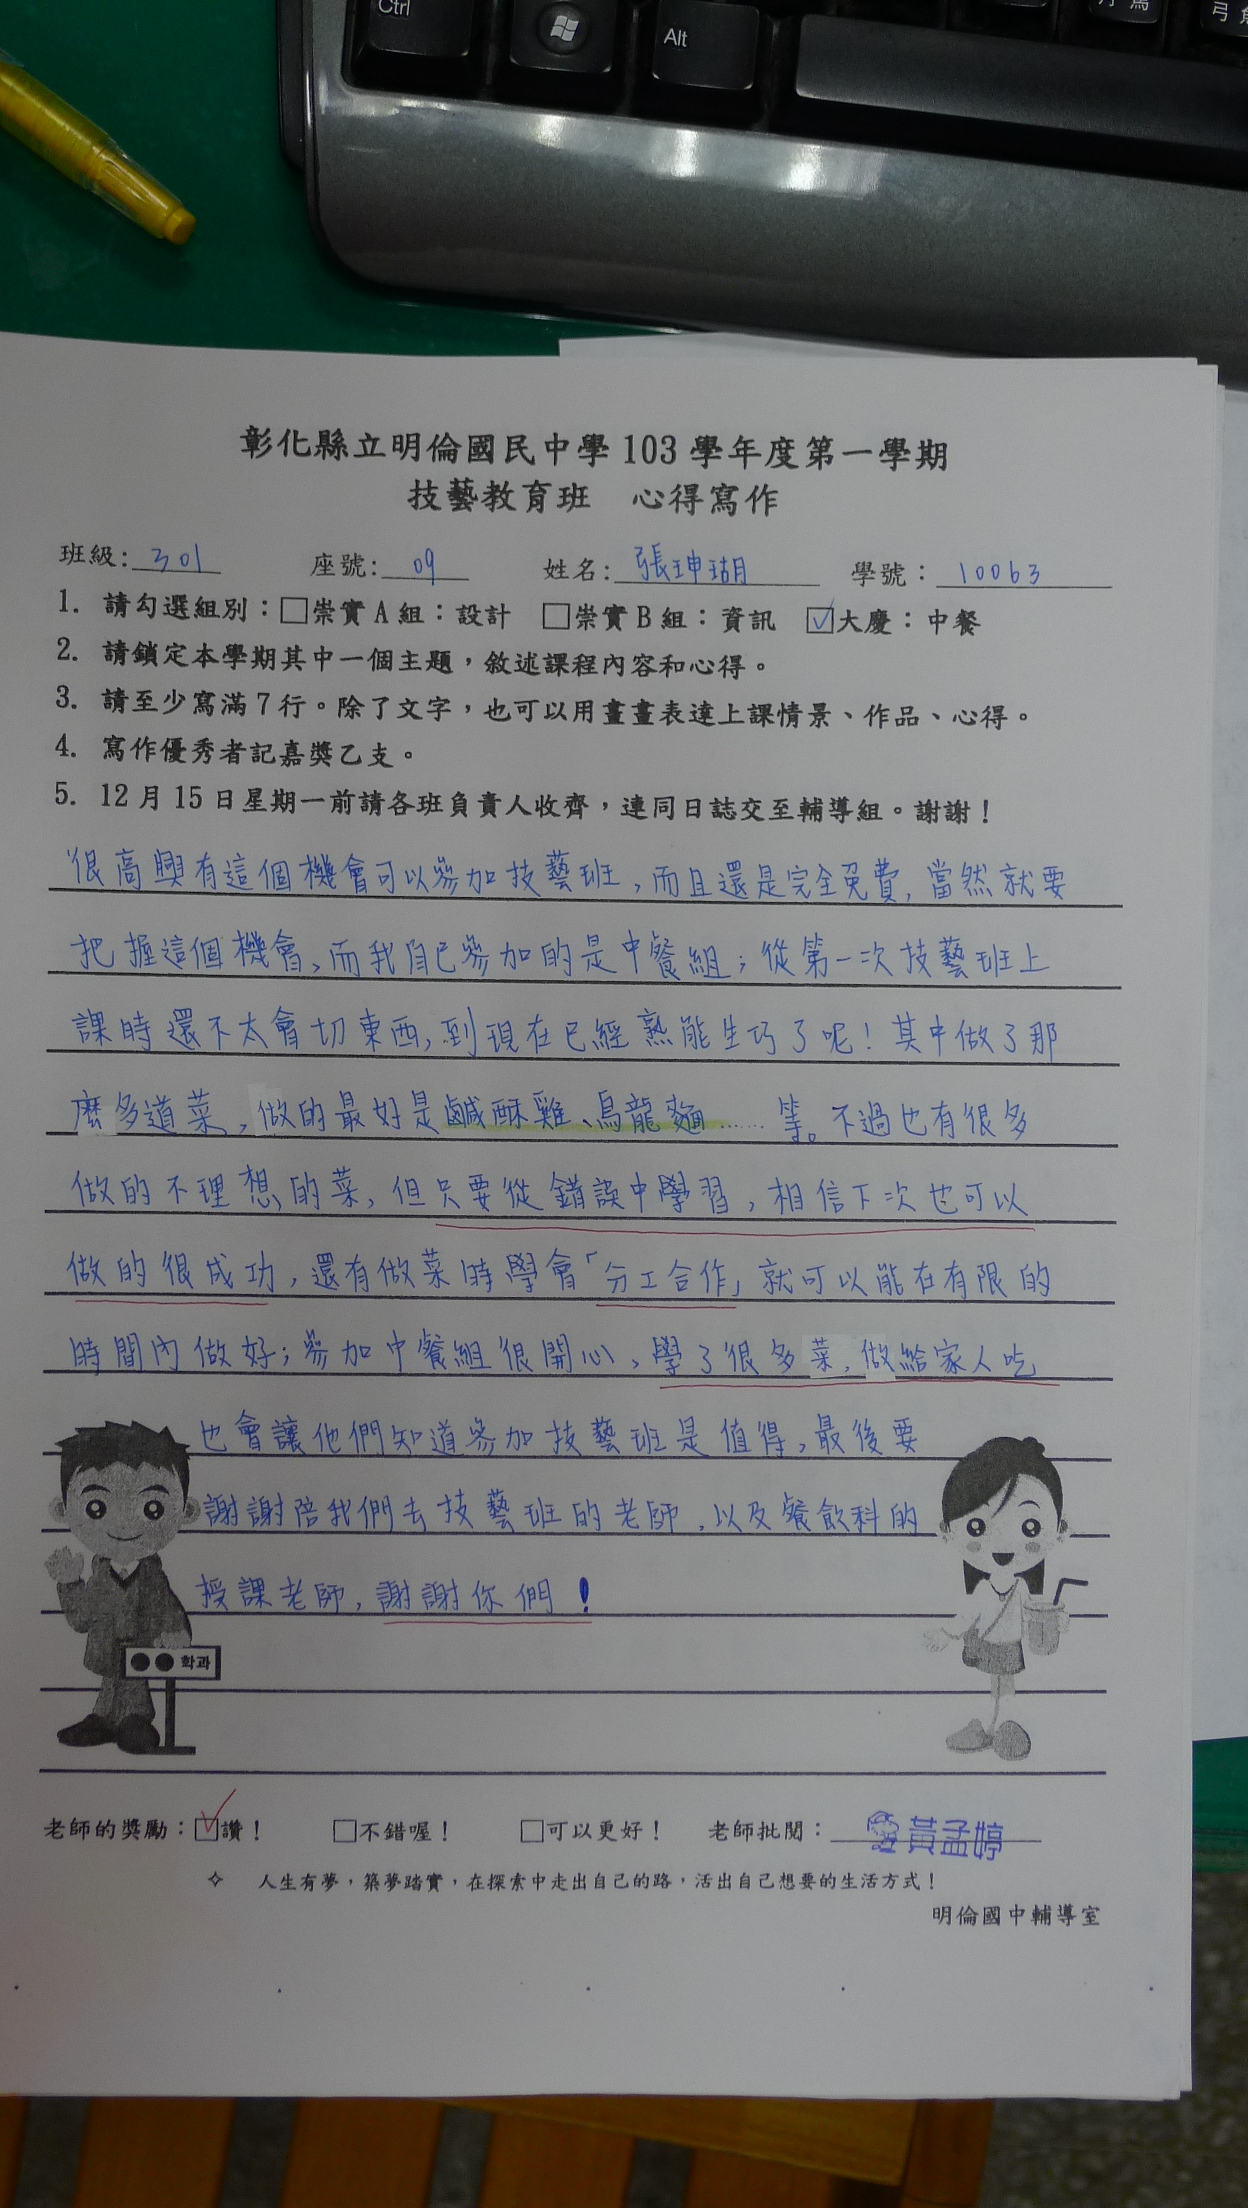 Ctrl
Alt
彰化縣立明倫國民中學 103 學年度第一學期
技藝教育班 心得寫作
班級: 301 座號: 09 姓名: 張珅瑚 學號: 10063
1. 請勾選組別:□崇實A組:設計 □崇實B組:資訊 ☑大慶:中餐
2. 請鎖定本學期其中一個主題,敘述課程內容和心得。
3. 請至少寫滿7行。除了文字,也可以用畫畫表達上課情景、作品、心得。
4. 寫作優秀者記嘉獎乙支。
5. 12月15日星期一前請各班負責人收齊,連同日誌交至輔導組。謝謝!
很高興有這個機會可以參加技藝班,而且還是完全免費,當然就要
把握這個機會、而我自己參加的是中餐組;從第一次技藝班上
課時還不太會切東西,到現在已經熟能生巧了呢!其中做了那
麼多道菜,做的最好是鹹酥雞、烏龍麵……等。不過也有很多
做的不理想的菜,但只要從錯誤中學習,相信下次也可以
做的很成功,還有做菜時學會「分工合作」就可以能在有限的
時間內做好;參加中餐組很開心、學了很多菜,做給家人吃
也會讓他們知道參加技藝班是值得,最後要
謝謝陪我們去技藝班的老師,以及餐飲科的
授課老師,謝謝你們!
●●학과
老師的獎勵:☑讚! □不錯喔! □可以更好! 老師批閱: 黃孟婷
✧ 人生有夢,築夢踏實,在探索中走出自己的路,活出自己想要的生活方式!
明倫國中輔導室